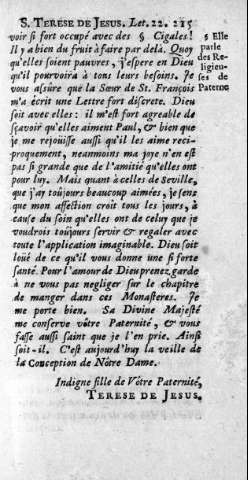 S. TERESE DE JESUS. Let. 22. 215
voir si fort occupé avec des § Cigales !
Il y a bien du fruit à faire par delà. Quoy
qu'elles soient pauvres, j'espere en Dieu
qu'il pourvoira à tous leurs besoins. Je
vous assûre que la Sœur de St. François
m'a écrit une Lettre fort discrete. Dieu
soit avec elles : il m'est fort agreable de
sçavoir qu'elles aiment Paul, & bien que
je me rejouïsse aussi qu'il les aime reci-
proquement, neanmoins ma joye n'en est
pas si grande que de l'amitié qu'elles ont
pour luy. Mais quant à celles de Seville,
que j'ay toûjours beaucoup aimées, je sens
que mon affection croît tous les jours, à
cause du soin qu'elles ont de celuy que je
voudrois toûjours servir & regaler avec
toute l'application imaginable. Dieu soit
loüé de ce qu'il vous donne une si forte
santé. Pour l'amour de Dieu prenez garde
à ne vous pas negliger sur le chapitre
de manger dans ces Monasteres. Je
me porte bien. Sa Divine Majesté
me conserve vôtre Paternité, & vous
fasse aussi saint que je l'en prie. Ainsi
soit-il. C'est aujourd'huy la veille de
la Conception de Nôtre Dame.
Indigne fille de Vôtre Paternité,
TERESE DE JESUS.
§ Elle
parle
des Re-
ligieu-
ses de
Paterne